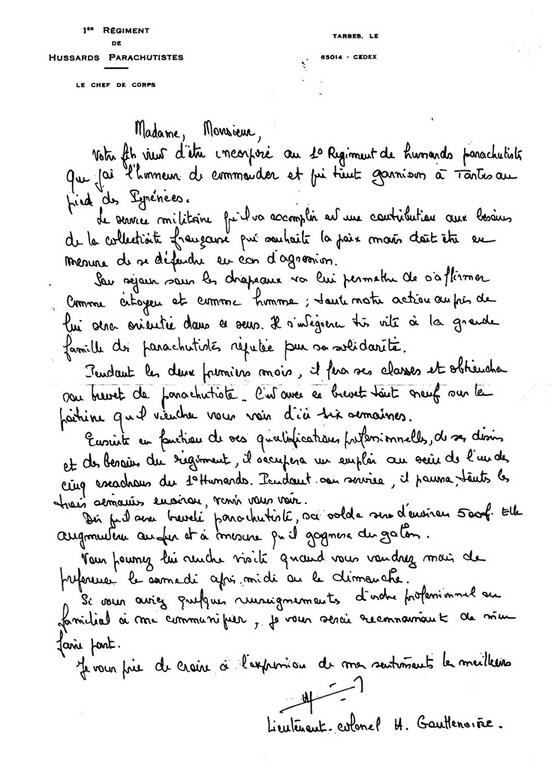 1er RÉGIMENT
DE
HUSSARDS PARACHUTISTES
LE CHEF DE CORPS
TARBES, LE
65014 - CEDEX
Madame, Monsieur,
Votre fils vient d'être incorporé au 1° Regiment de hussards parachutistes
que j'ai l'honneur de commander et qui tient garnison à Tarbes au
pied des Pyrénées.
Le service militaire qu'il va accomplir est une contribution aux besoins
de la collectivité française qui souhaite la paix mais doit être en
mesure de se défendre en cas d'agression.
Son séjour sous les drapeaux va lui permettre de s'affirmer
comme citoyen et comme homme ; toute notre action auprès de
lui sera orientée dans ce sens. Il s'intégrera très vite à la grande
famille des parachutistes réputée pour sa solidarité.
Pendant les deux premiers mois, il fera ses classes et obtiendra
son brevet de parachutiste. C'est avec ce brevet tout neuf sur la
poitrine qu'il viendra vous voir d'ici six semaines.
Ensuite en fonction de ses qualifications professionnelles, de ses désirs
et des besoins du régiment, il occupera un emploi au sein de l'un des
cinq escadrons du 1° Hussards. Pendant son service, il pourra, toutes les
trois semaines environ, venir vous voir.
Dès qu'il sera breveté parachutiste, sa solde sera d'environ 500f. Elle
augmentera au fur et à mesure qu'il gagnera du galon.
Vous pourrez lui rendre visite quand vous voudrez mais de
preference le samedi après-midi ou le dimanche.
Si vous aviez quelques renseignements d'ordre professionnel ou
familial à me communiquer, je vous serais reconnaissant de m'en
faire part.
Je vous prie de croire à l'expression de mes sentiments les meilleurs
Lieutenant-colonel H.